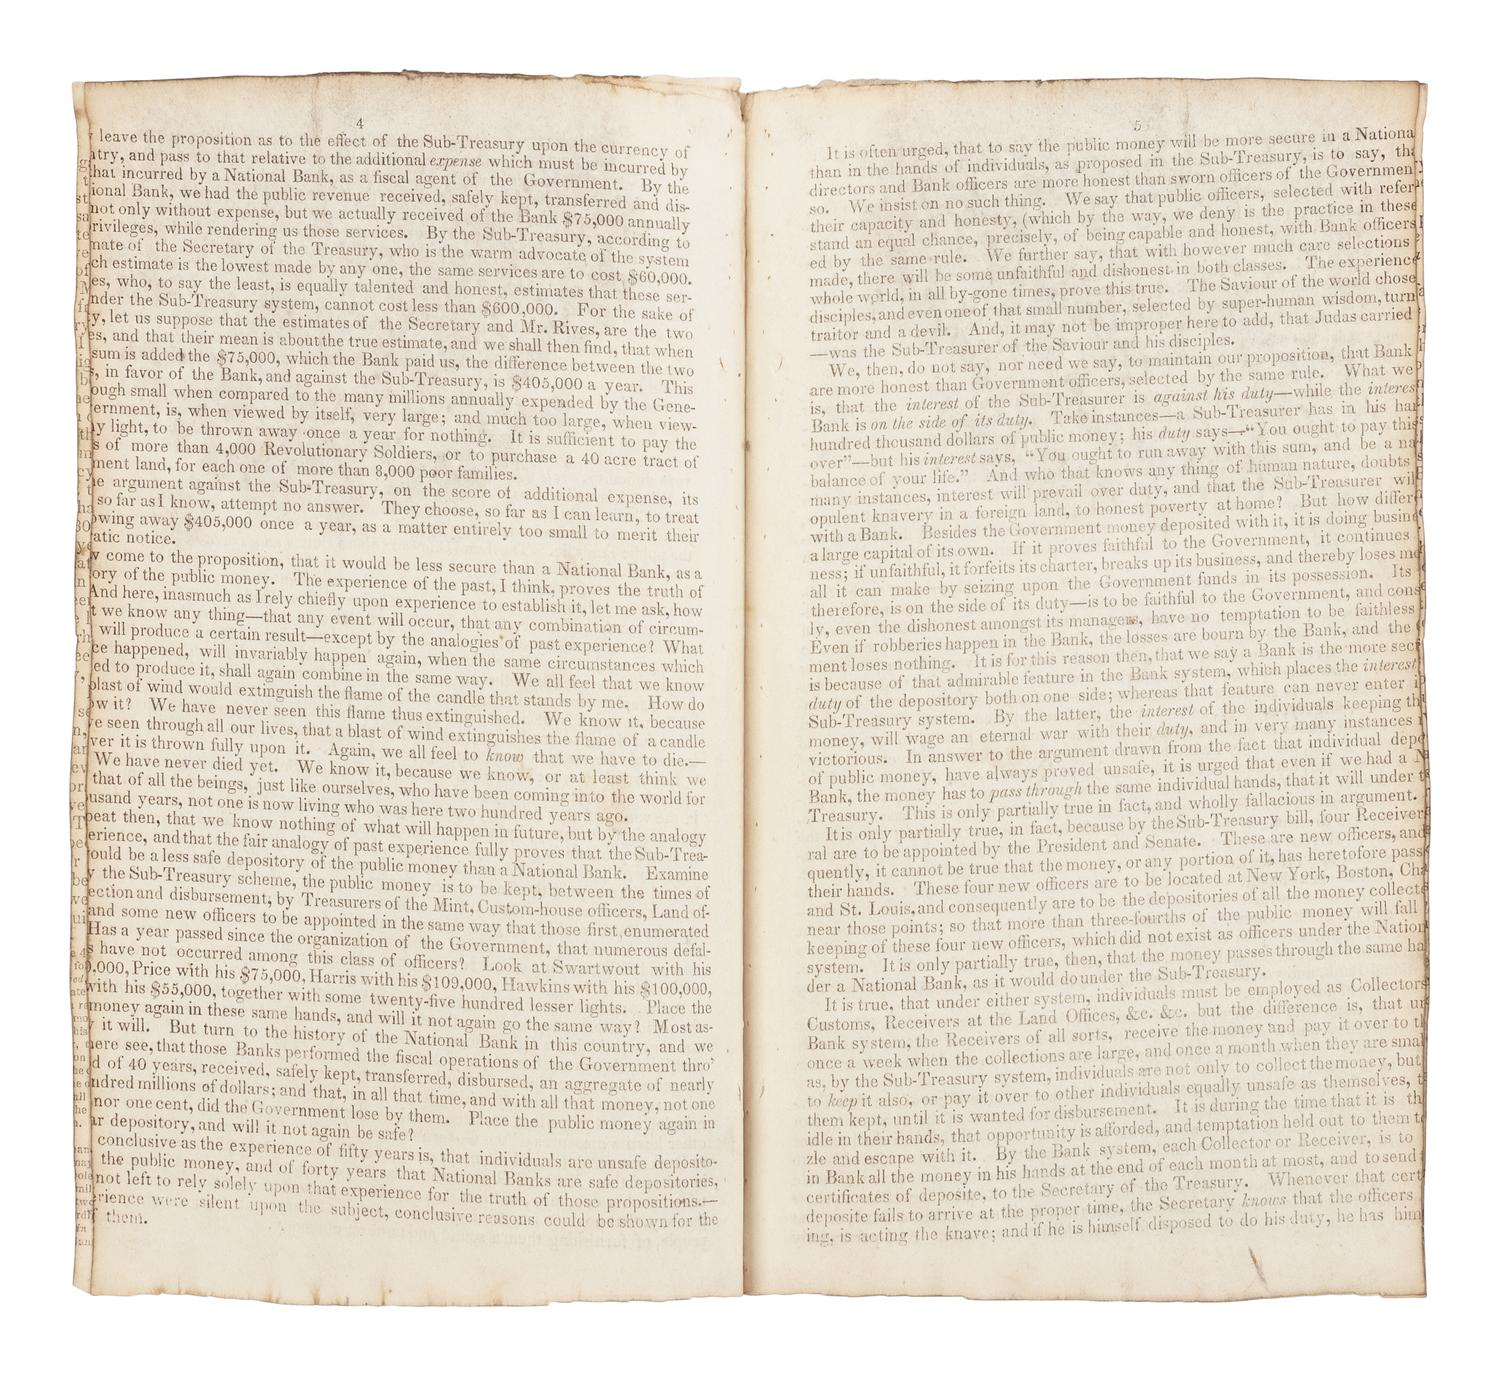 4
leave the proposition as to the effect of the Sub-Treasury upon the currency of
ntry, and pass to that relative to the additional expense which must be incurred by
that incurred by a National Bank, as a fiscal agent of the Government. By the
ional Bank, we had the public revenue received, safely kept, transferred and dis-
not only without expense, but we actually received of the Bank $75,000 annually
rivileges, while rendering us those services. By the Sub-Treasury, according to
mate of the Secretary of the Treasury, who is the warm advocate of the system
ch estimate is the lowest made by any one, the same services are to cost $60,000.
es, who, to say the least, is equally talented and honest, estimates that these ser-
nder the Sub-Treasury system, cannot cost less than $600,000. For the sake of
y, let us suppose that the estimates of the Secretary and Mr. Rives, are the two
es, and that their mean is about the true estimate, and we shall then find, that when
sum is added the $75,000, which the Bank paid us, the difference between the two
s, in favor of the Bank, and against the Sub-Treasury, is $405,000 a year. This
ough small when compared to the many millions annually expended by the Gene-
ernment, is, when viewed by itself, very large; and much too large, when view-
y light, to be thrown away once a year for nothing. It is sufficient to pay the
s of more than 4,000 Revolutionary Soldiers, or to purchase a 40 acre tract of
ment land, for each one of more than 8,000 poor families.
e argument against the Sub-Treasury, on the score of additional expense, its
so far as I know, attempt no answer. They choose, so far as I can learn, to treat
owing away $405,000 once a year, as a matter entirely too small to merit their
atic notice.
w come to the proposition, that it would be less secure than a National Bank, as a
ory of the public money. The experience of the past, I think, proves the truth of
And here, inasmuch as I rely chiefly upon experience to establish it, let me ask, how
t we know any thing—that any event will occur, that any combination of circum-
will produce a certain result—except by the analogies of past experience? What
ce happened, will invariably happen again, when the same circumstances which
ed to produce it, shall again combine in the same way. We all feel that we know
blast of wind would extinguish the flame of the candle that stands by me. How do
ow it? We have never seen this flame thus extinguished. We know it, because
ve seen through all our lives, that a blast of wind extinguishes the flame of a candle
ver it is thrown fully upon it. Again, we all feel to know that we have to die.—
We have never died yet. We know it, because we know, or at least think we
that of all the beings, just like ourselves, who have been coming into the world for
usand years, not one is now living who was here two hundred years ago.
peat then, that we know nothing of what will happen in future, but by the analogy
erience, and that the fair analogy of past experience fully proves that the Sub-Trea-
ould be a less safe depository of the public money than a National Bank. Examine
y the Sub-Treasury scheme, the public money is to be kept, between the times of
ection and disbursement, by Treasurers of the Mint, Custom-house officers, Land of-
and some new officers to be appointed in the same way that those first enumerated
Has a year passed since the organization of the Government, that numerous defal-
s have not occurred among this class of officers? Look at Swartwout with his
0,000, Price with his $75,000, Harris with his $109,000, Hawkins with his $100,000,
with his $55,000, together with some twenty-five hundred lesser lights. Place the
money again in these same hands, and will it not again go the same way? Most as-
y it will. But turn to the history of the National Bank in this country, and we
here see, that those Banks performed the fiscal operations of the Government thro'
d of 40 years, received, safely kept, transferred, disbursed, an aggregate of nearly
ndred millions of dollars; and that, in all that time, and with all that money, not one
nor one cent, did the Government lose by them. Place the public money again in
ar depository, and will it not again be safe?
conclusive as the experience of fifty years is, that individuals are unsafe deposito-
the public money, and of forty years that National Banks are safe depositories,
not left to rely solely upon that experience for the truth of those propositions.—
rience were silent upon the subject, conclusive reasons could be shown for the
f them.
5
It is often urged, that to say the public money will be more secure in a Nationa
than in the hands of individuals, as proposed in the Sub-Treasury, is to say, tha
directors and Bank officers are more honest than sworn officers of the Governmen
so. We insist on no such thing. We say that public officers, selected with refer
their capacity and honesty, (which by the way, we deny is the practice in these
stand an equal chance, precisely, of being capable and honest, with Bank officers
ed by the same rule. We further say, that with however much care selections
made, there will be some unfaithful and dishonest in both classes. The experienc
whole world, in all by-gone times, prove this true. The Saviour of the world chose
disciples, and even one of that small number, selected by super-human wisdom, turn
traitor and a devil. And, it may not be improper here to add, that Judas carried
—was the Sub-Treasurer of the Saviour and his disciples.
We, then, do not say, nor need we say, to maintain our proposition, that Bank
are more honest than Government officers, selected by the same rule. What we
is, that the interest of the Sub-Treasurer is against his duty—while the interes
Bank is on the side of its duty. Take instances—a Sub-Treasurer has in his ha
hundred thousand dollars of public money; his duty says—“You ought to pay this
over”—but his interest says, “You ought to run away with this sum, and be a na
balance of your life.” And who that knows any thing of human nature, doubts
many instances, interest will prevail over duty, and that the Sub-Treasurer wil
opulent knavery in a foreign land, to honest poverty at home? But how differ
with a Bank. Besides the Government money deposited with it, it is doing busin
a large capital of its own. If it proves faithful to the Government, it continues
ness; if unfaithful, it forfeits its charter, breaks up its business, and thereby loses m
all it can make by seizing upon the Government funds in its possession. Its
therefore, is on the side of its duty—is to be faithful to the Government, and cons
ly, even the dishonest amongst its managers, have no temptation to be faithless
Even if robberies happen in the Bank, the losses are bourn by the Bank, and the
ment loses nothing. It is for this reason then, that we say a Bank is the more sec
is because of that admirable feature in the Bank system, which places the interest
duty of the depository both on one side; whereas that feature can never enter i
Sub-Treasury system. By the latter, the interest of the individuals keeping th
money, will wage an eternal war with their duty, and in very many instances
victorious. In answer to the argument drawn from the fact that individual depo
of public money, have always proved unsafe, it is urged that even if we had a N
Bank, the money has to pass through the same individual hands, that it will under t
Treasury. This is only partially true in fact, and wholly fallacious in argument.
It is only partially true, in fact, because by the Sub-Treasury bill, four Receiver
ral are to be appointed by the President and Senate. These are new officers, and
quently, it cannot be true that the money, or any portion of it, has heretofore pass
their hands. These four new officers are to be located at New York, Boston, Cha
and St. Louis, and consequently are to be the depositories of all the money collecte
near those points; so that more than three-fourths of the public money will fall
keeping of these four new officers, which did not exist as officers under the Nation
system. It is only partially true, then, that the money passes through the same ha
der a National Bank, as it would do under the Sub-Treasury.
It is true, that under either system, individuals must be employed as Collectors
Customs, Receivers at the Land Offices, &c. &c. but the difference is, that u
Bank system, the Receivers of all sorts, receive the money and pay it over to t
once a week when the collections are large, and once a month when they are smal
as, by the Sub-Treasury system, individuals are not only to collect the money, but
to keep it also, or pay it over to other individuals equally unsafe as themselves, t
them kept, until it is wanted for disbursement. It is during the time that it is th
idle in their hands, that opportunity is afforded, and temptation held out to them t
zle and escape with it. By the Bank system, each Collector or Receiver, is to
in Bank all the money in his hands at the end of each month at most, and to send
certificates of deposite, to the Secretary of the Treasury. Whenever that cert
deposite fails to arrive at the proper time, the Secretary knows that the officers
ing, is acting the knave; and if he is himself disposed to do his duty, he has him